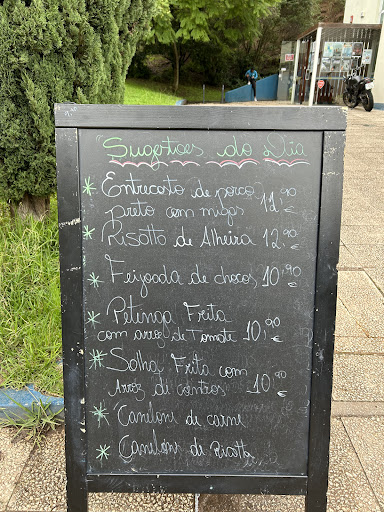 Sugestões do Dia
* Entrecosto de porco
preto com migas 11,90 €
* Risotto de Alheira 12,90 €
* Feijoada de chocos 10,90 €
* Petinga Frita
com arroz de Tomate 10,90 €
* Solha Frita com
Arroz de coentros 10,90 €
* Caneloni de carne
* Caneloni de Ricotta